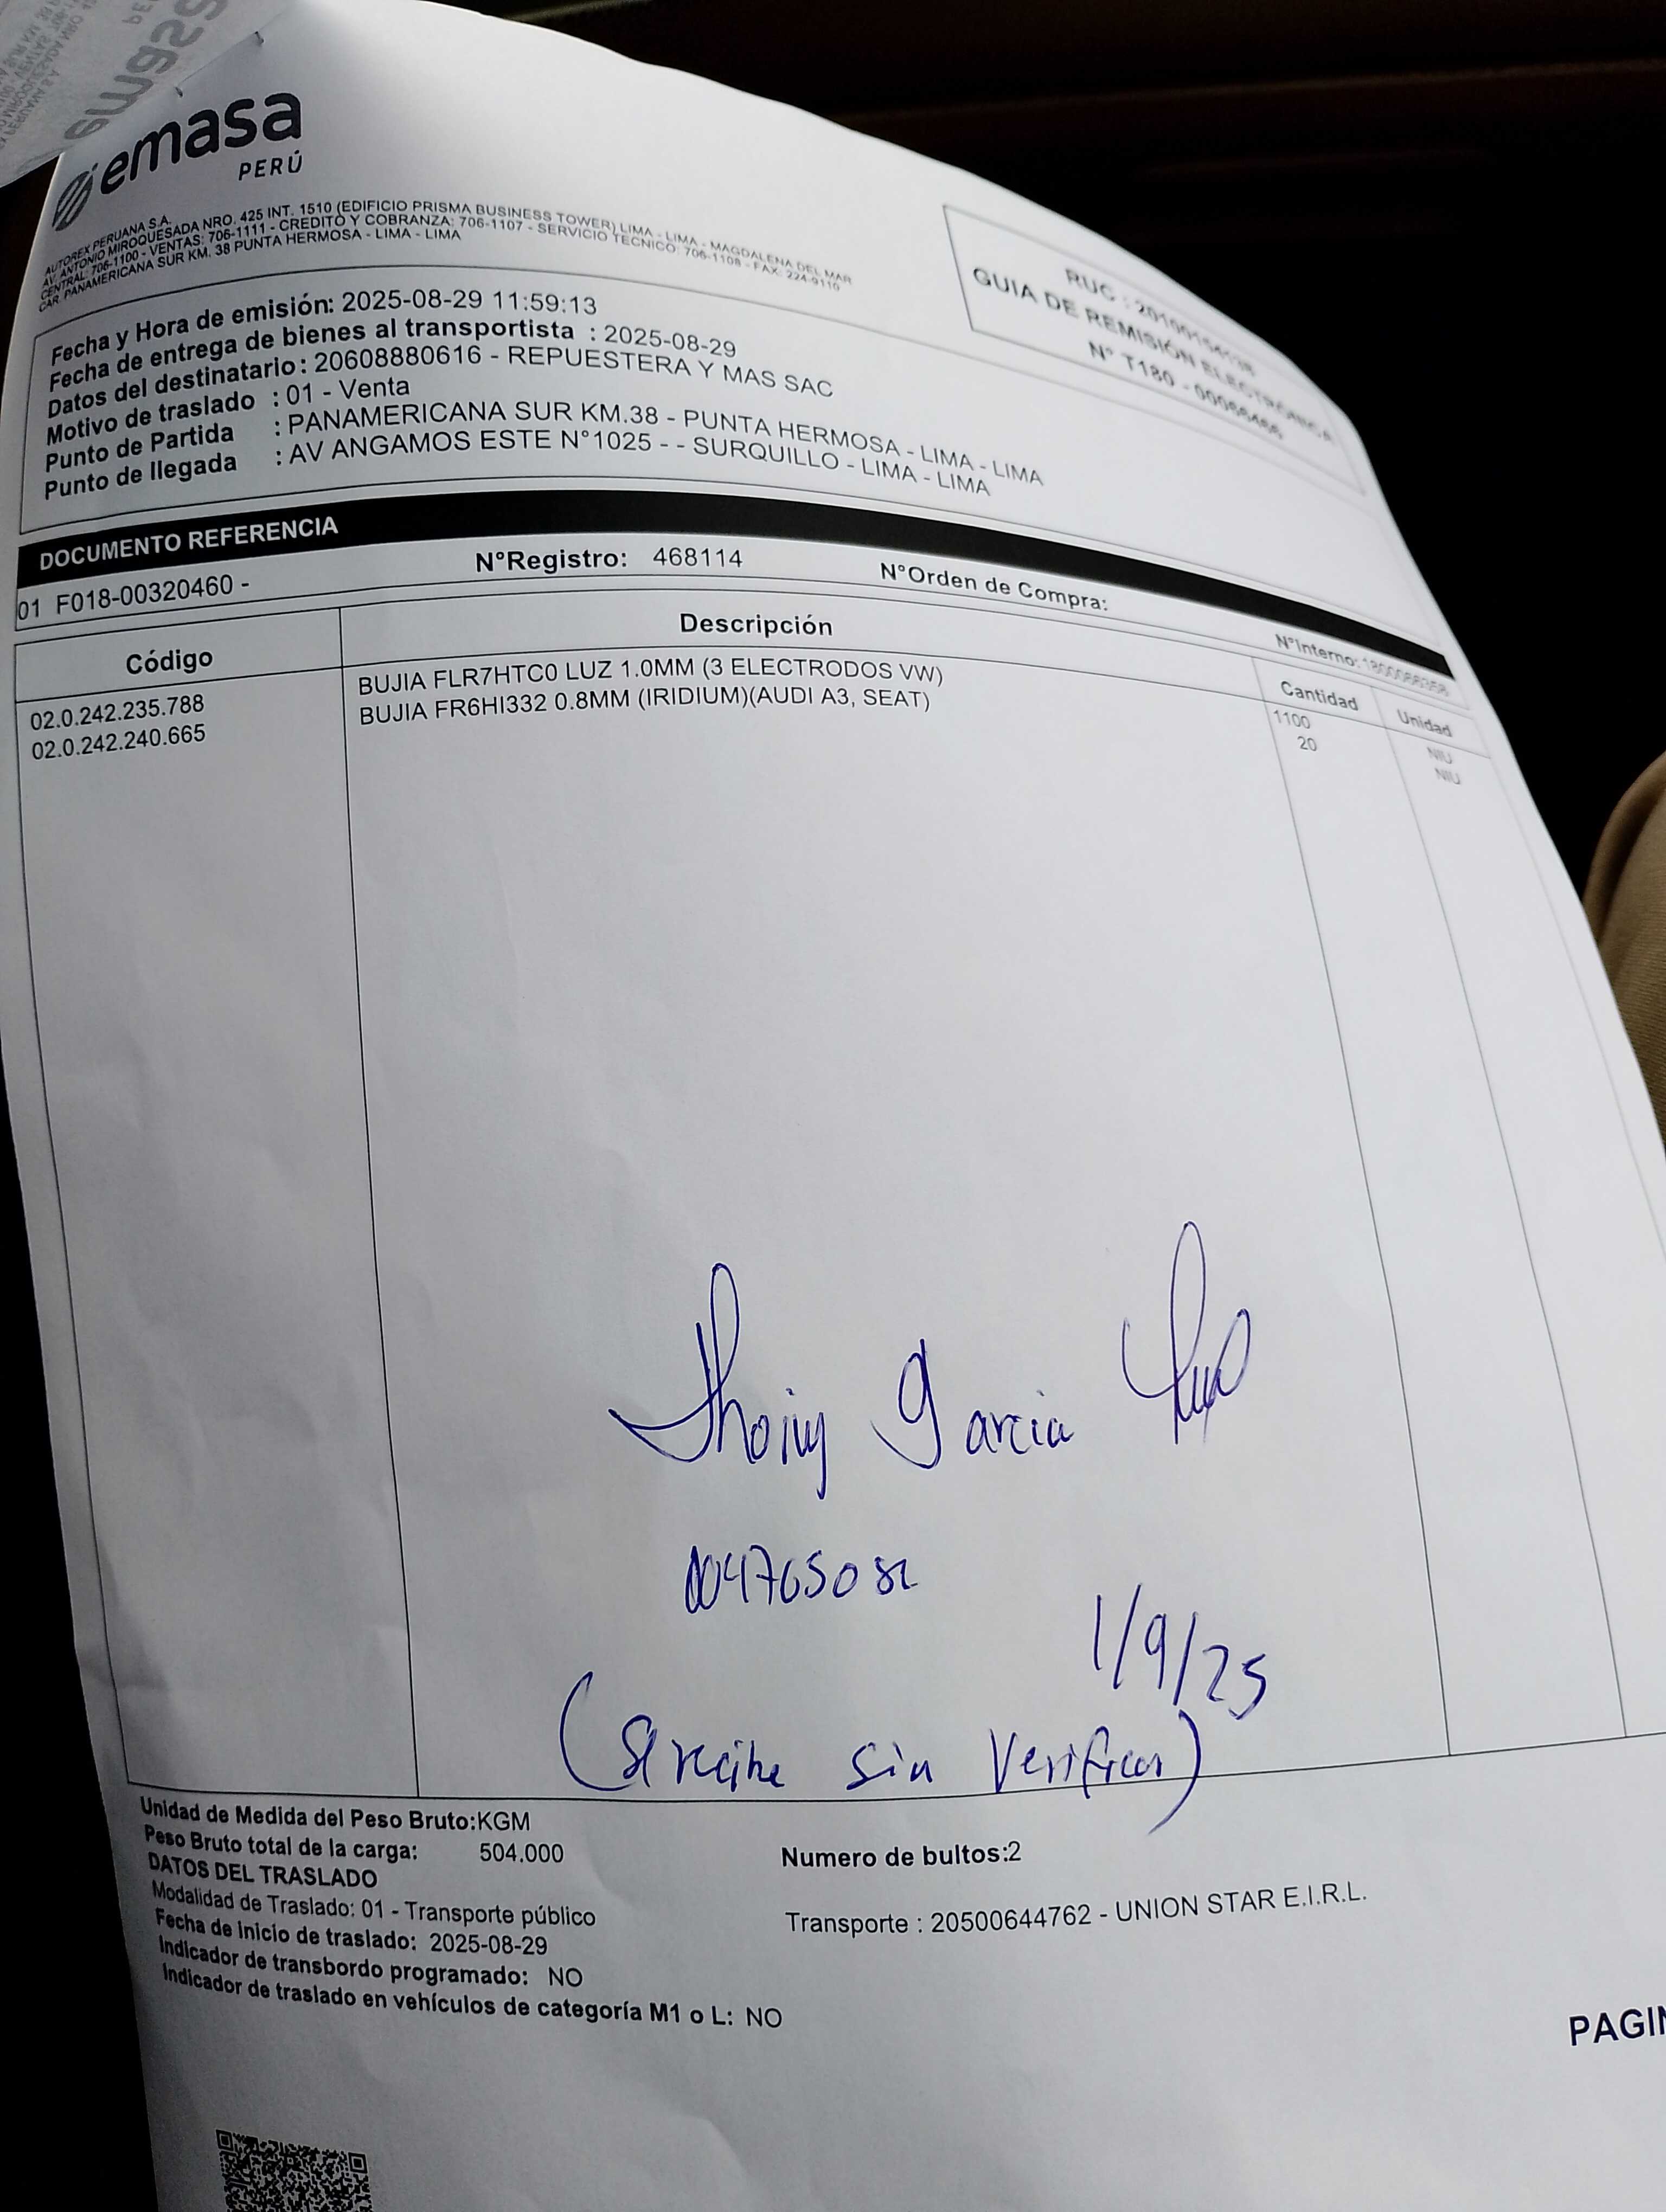 emasa
PERÚ
AUTOREX PERUANA S.A.
AV. ANTONIO MIROQUESADA NRO. 425 INT. 1510 (EDIFICIO PRISMA BUSINESS TOWER) LIMA - LIMA - MAGDALENA DEL MAR
CENTRAL: 706-1100 - VENTAS: 706-1111 - CREDITO Y COBRANZA: 706-1107 - SERVICIO TECNICO: 706-1108 - FAX: 224-9110
CAR. PANAMERICANA SUR KM. 38 PUNTA HERMOSA - LIMA - LIMA
RUC :
GUIA DE REMISIÓN ELECTRÓNICA
N° T180 -
Fecha y Hora de emisión: 2025-08-29 11:59:13
Fecha de entrega de bienes al transportista : 2025-08-29
Datos del destinatario: 20608880616 - REPUESTERA Y MAS SAC
Motivo de traslado : 01 - Venta
Punto de Partida : PANAMERICANA SUR KM.38 - PUNTA HERMOSA - LIMA - LIMA
Punto de llegada : AV ANGAMOS ESTE N°1025 - - SURQUILLO - LIMA - LIMA
DOCUMENTO REFERENCIA
01 F018-00320460 - N°Registro: 468114 N°Orden de Compra: N°Interno:
Código Descripción Cantidad Unidad
02.0.242.235.788 BUJIA FLR7HTC0 LUZ 1.0MM (3 ELECTRODOS VW) 1100 NIU
02.0.242.240.665 BUJIA FR6HI332 0.8MM (IRIDIUM)(AUDI A3, SEAT) 20 NIU
Jhoiny Garcia
1/9/25
(Se recibe sin Verificar)
Unidad de Medida del Peso Bruto:KGM
Peso Bruto total de la carga: 504.000 Numero de bultos:2
DATOS DEL TRASLADO
Modalidad de Traslado: 01 - Transporte público Transporte : 20500644762 - UNION STAR E.I.R.L.
Fecha de inicio de traslado: 2025-08-29
Indicador de transbordo programado: NO
Indicador de traslado en vehículos de categoría M1 o L: NO
PAGIN